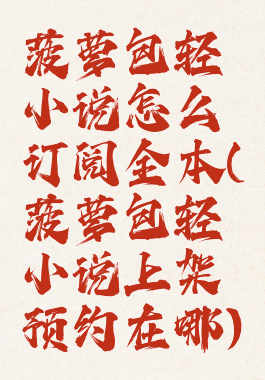 菠萝包轻
小说怎么
订阅全本(
菠萝包轻
小说上架
预约在哪)